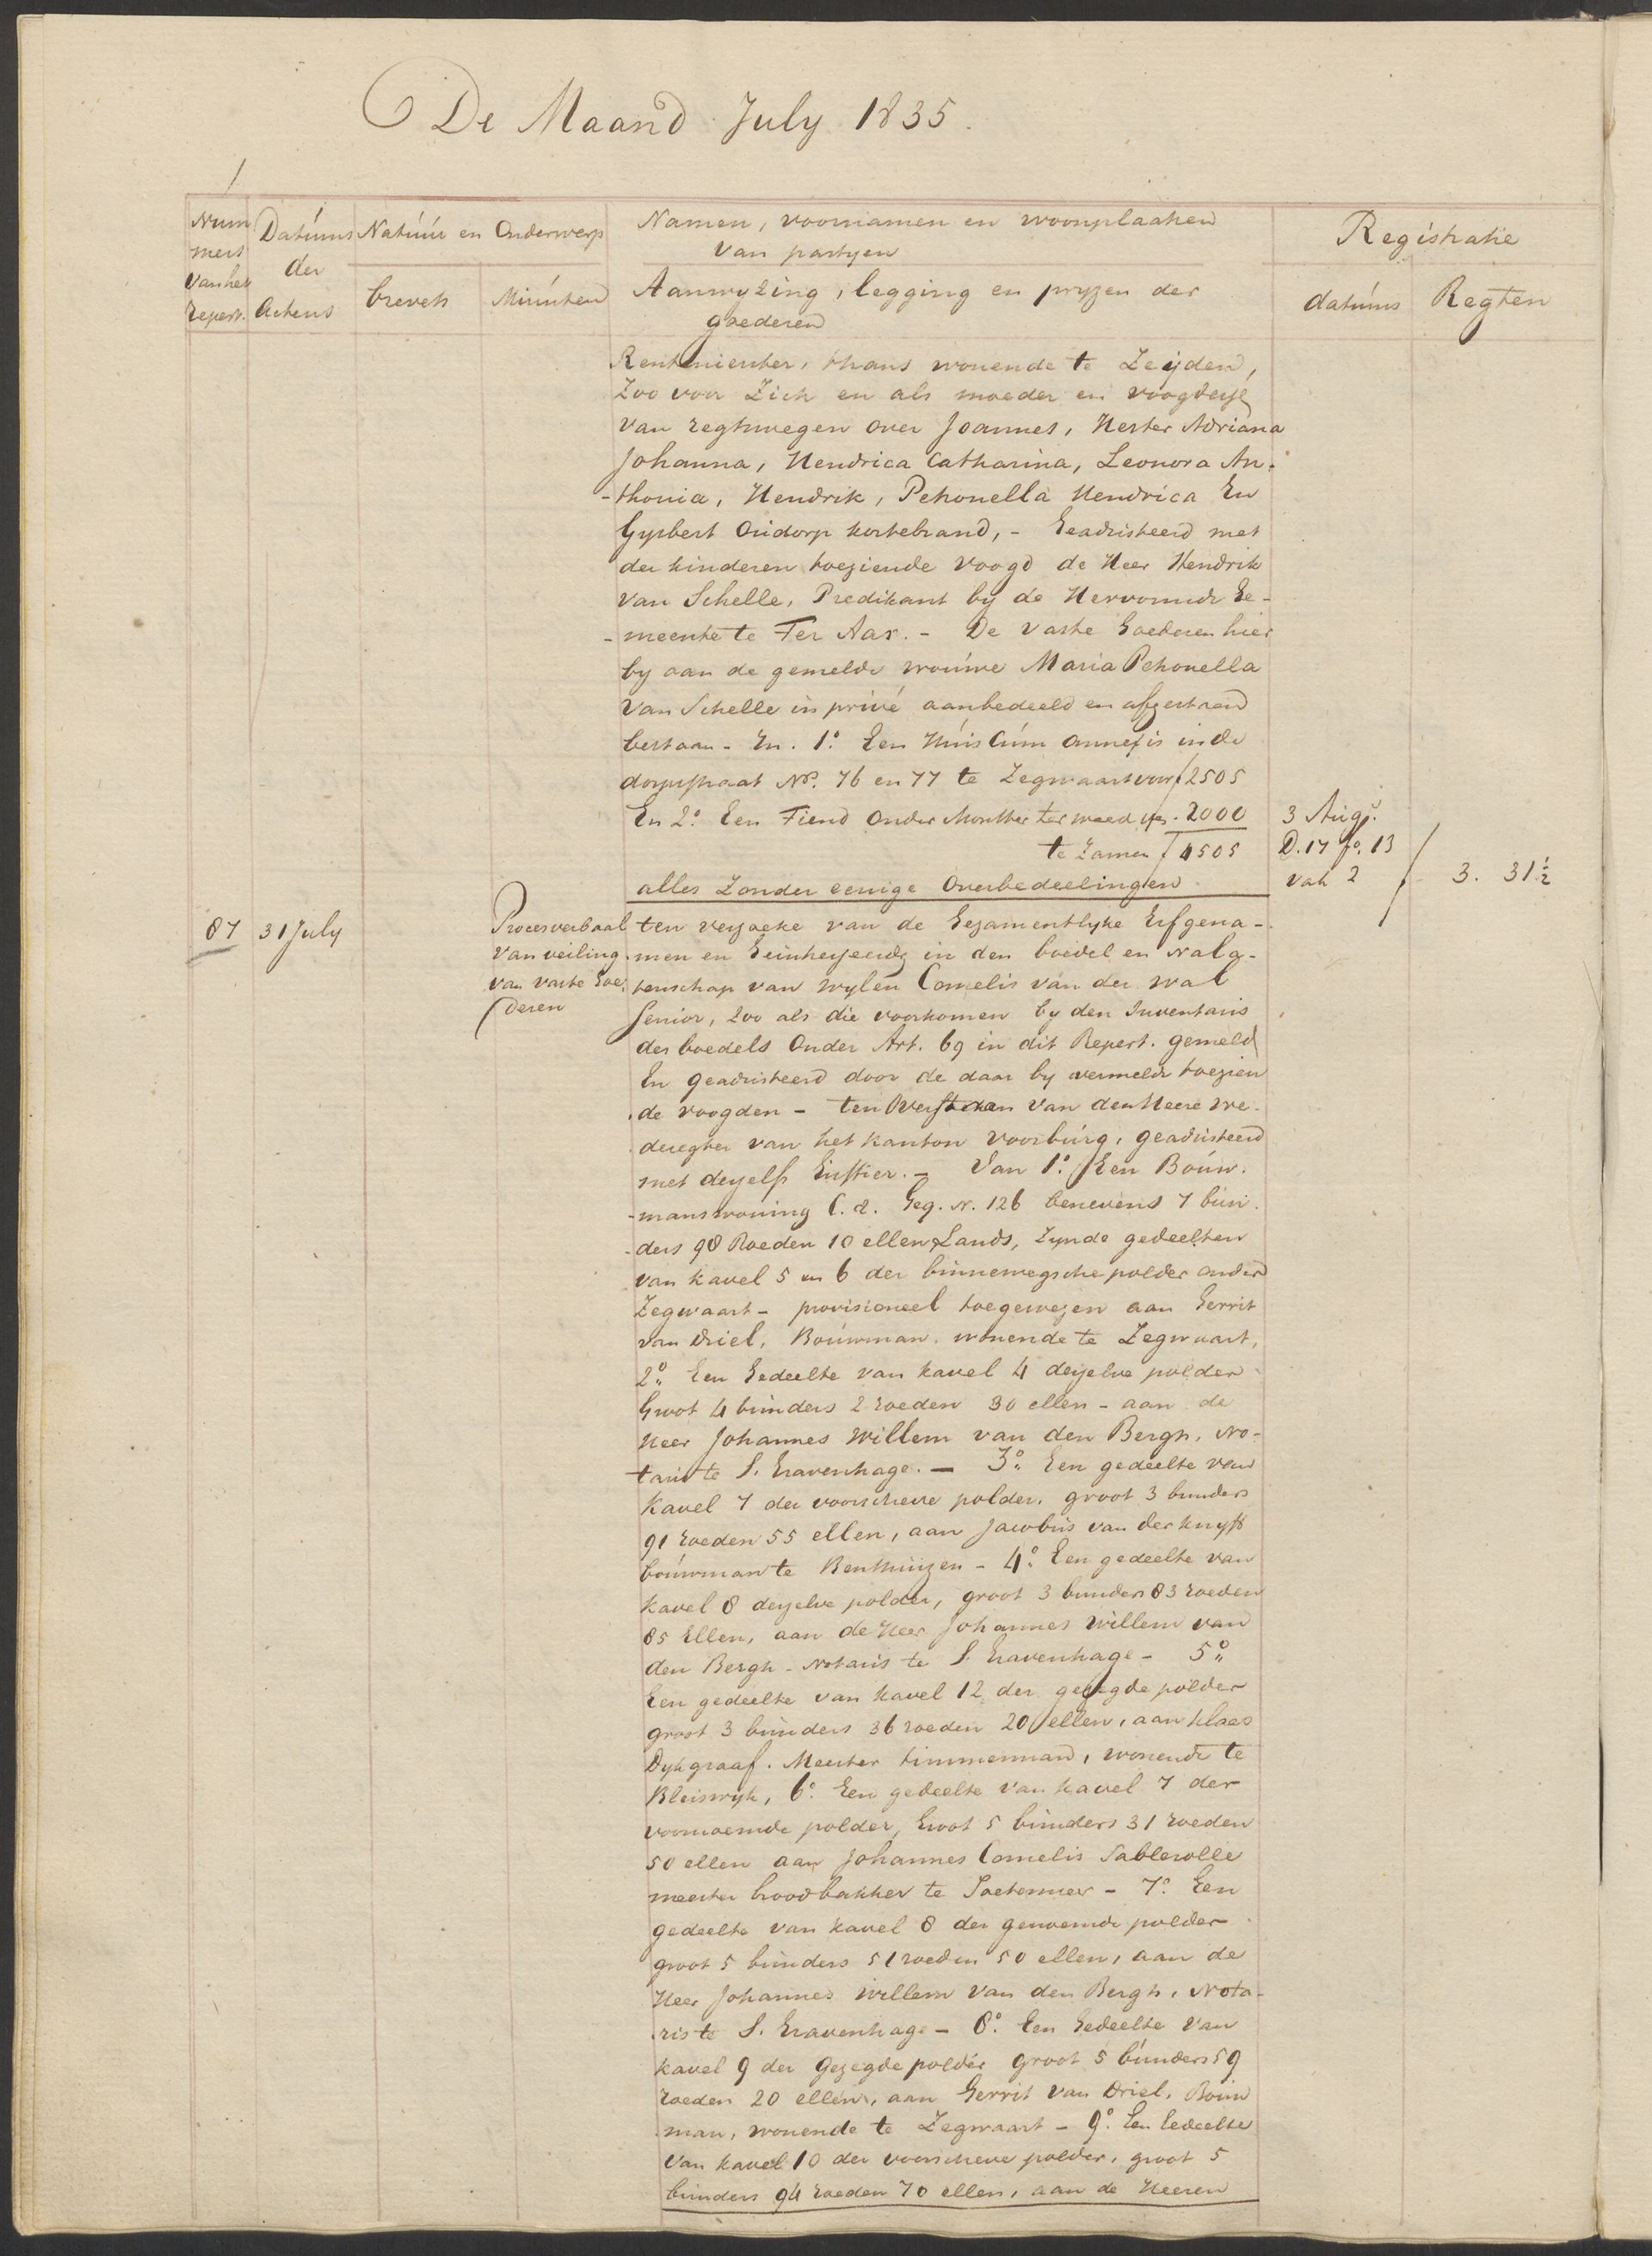 De Maand July 1835.
Num
mers
van het
Repert.
Datums
der
Actens
Natuur en Onderwerp
brevets
Minuten
Namen, voornamen en woonplaatsen
van partyen
Aanwyzing, legging en pryzen der
goederen
Registratie
datums
Regten
Rentenierster, thans wonende te Leijden,
Zoo voor Zich en als moeder en voogdesse
van regtswegen over Joannes, Hester Adriana
Johanna, Hendrica Catharina, Leonora An-
-thonia, Hendrik, Petronella Hendrica En
Gysbert Oudorp kortebrand, - Geadsisteerd met
der kinderen toeziende voogd de Heer Hendrik
van Schelle, Predikant by de Hervormde Ge-
-meente te Ter Aar. - De vaste Goederen hier
by aan de gemelde vrouwe Maria Petronella
van Schelle in privé aanbedeeld en afgestaan
bestaan - In. 1o. Een Huis Cum annexis in de
dorpstraat No. 76 en 77 te Zegwaart voor f 2505
En 2o. Een Tiend onder Monster ter waarde van - 2000
te Zamen f 4505
alles Zonder eenige Overbedeelingen
3 Augs.
D. 17 fo. 13
vak 2
3. 31½
87
31 July
Procesverbaal
van veiling
van vaste Goe-
deren
ten verzoeke van de Gezamentlyke Erfgena-
men en Geinteresseerde in den boedel en Nala-
tenschap van wylen Cornelis van der Wal
Senior, Zoo als die voorkomen by den Inventaris
des boedels Onder Art. 69 in dit Repert. gemeld
En geadsisteerd door de daar by vermelde toezien
de voogden - ten Overstaan van den Heere Vre-
deregter van het kanton Voorburg, geadsisteerd
met deszelfs Griffier. - Van 1o. Een Bouw-
-manswoning C. a. Geq. N. 126 benevens 7 bun-
-ders 98 Roeden 10 ellen Lands, Zynde gedeelten
van kavel 5 en 6 der binnenwegsche polder onder
Zegwaart - provisioneel toegewezen aan Gerrit
van Driel, Bouwman wonende te Zegwaart,
2o. Een Gedeelte van kavel 4 derzelve polder
Groot 4 bunders 2 roeden 30 ellen - aan de
Heer Johannes Willem van den Bergh, No-
taris te S. Gravenhage. - 3o. Een gedeelte van
Kavel 7 der voorschreve polder, groot 3 bunders
91 roeden 55 ellen, aan Jacobus van der Knyff
bouwman te Benthuizen - 4o. Een gedeelte van
Kavel 8 derzelve polder, groot 3 bunders 83 roeden
85 Ellen, aan de Heer Johannes Willem van
den Bergh - Notaris te S. Gravenhage - 5o.
Een gedeelte van kavel 12 der gezegde polder
groot 3 bunders 36 roeden 20 ellen, aan Klaas
Dykgraaf. Meester timmerman, wonende te
Bleiswyk, 6o. Een gedeelte van kavel 7 der
voornoemde polder, Groot 5 bunders 31 roeden
50 ellen aan Johannes Cornelis Sablerolle
meester broodbakker te Soetermeer - 7o. Een
gedeelte van kavel 8 der genoemde polder
groot 5 bunders 51 roeden 50 ellen, aan de
Heer Johannes Willem van den Bergh, Nota-
ris te S. Gravenhage - 8o. Een Gedeelte van
kavel 9 der Gezegde polder groot 5 bunders 59
roeden 20 ellen, aan Gerrit van Driel, Bouw
man, wonende te Zegwaart - 9o. Een Gedeelte
van kavel 10 der voorschreve polder, groot 5
bunders 94 roeden 70 ellen, aan de Heeren